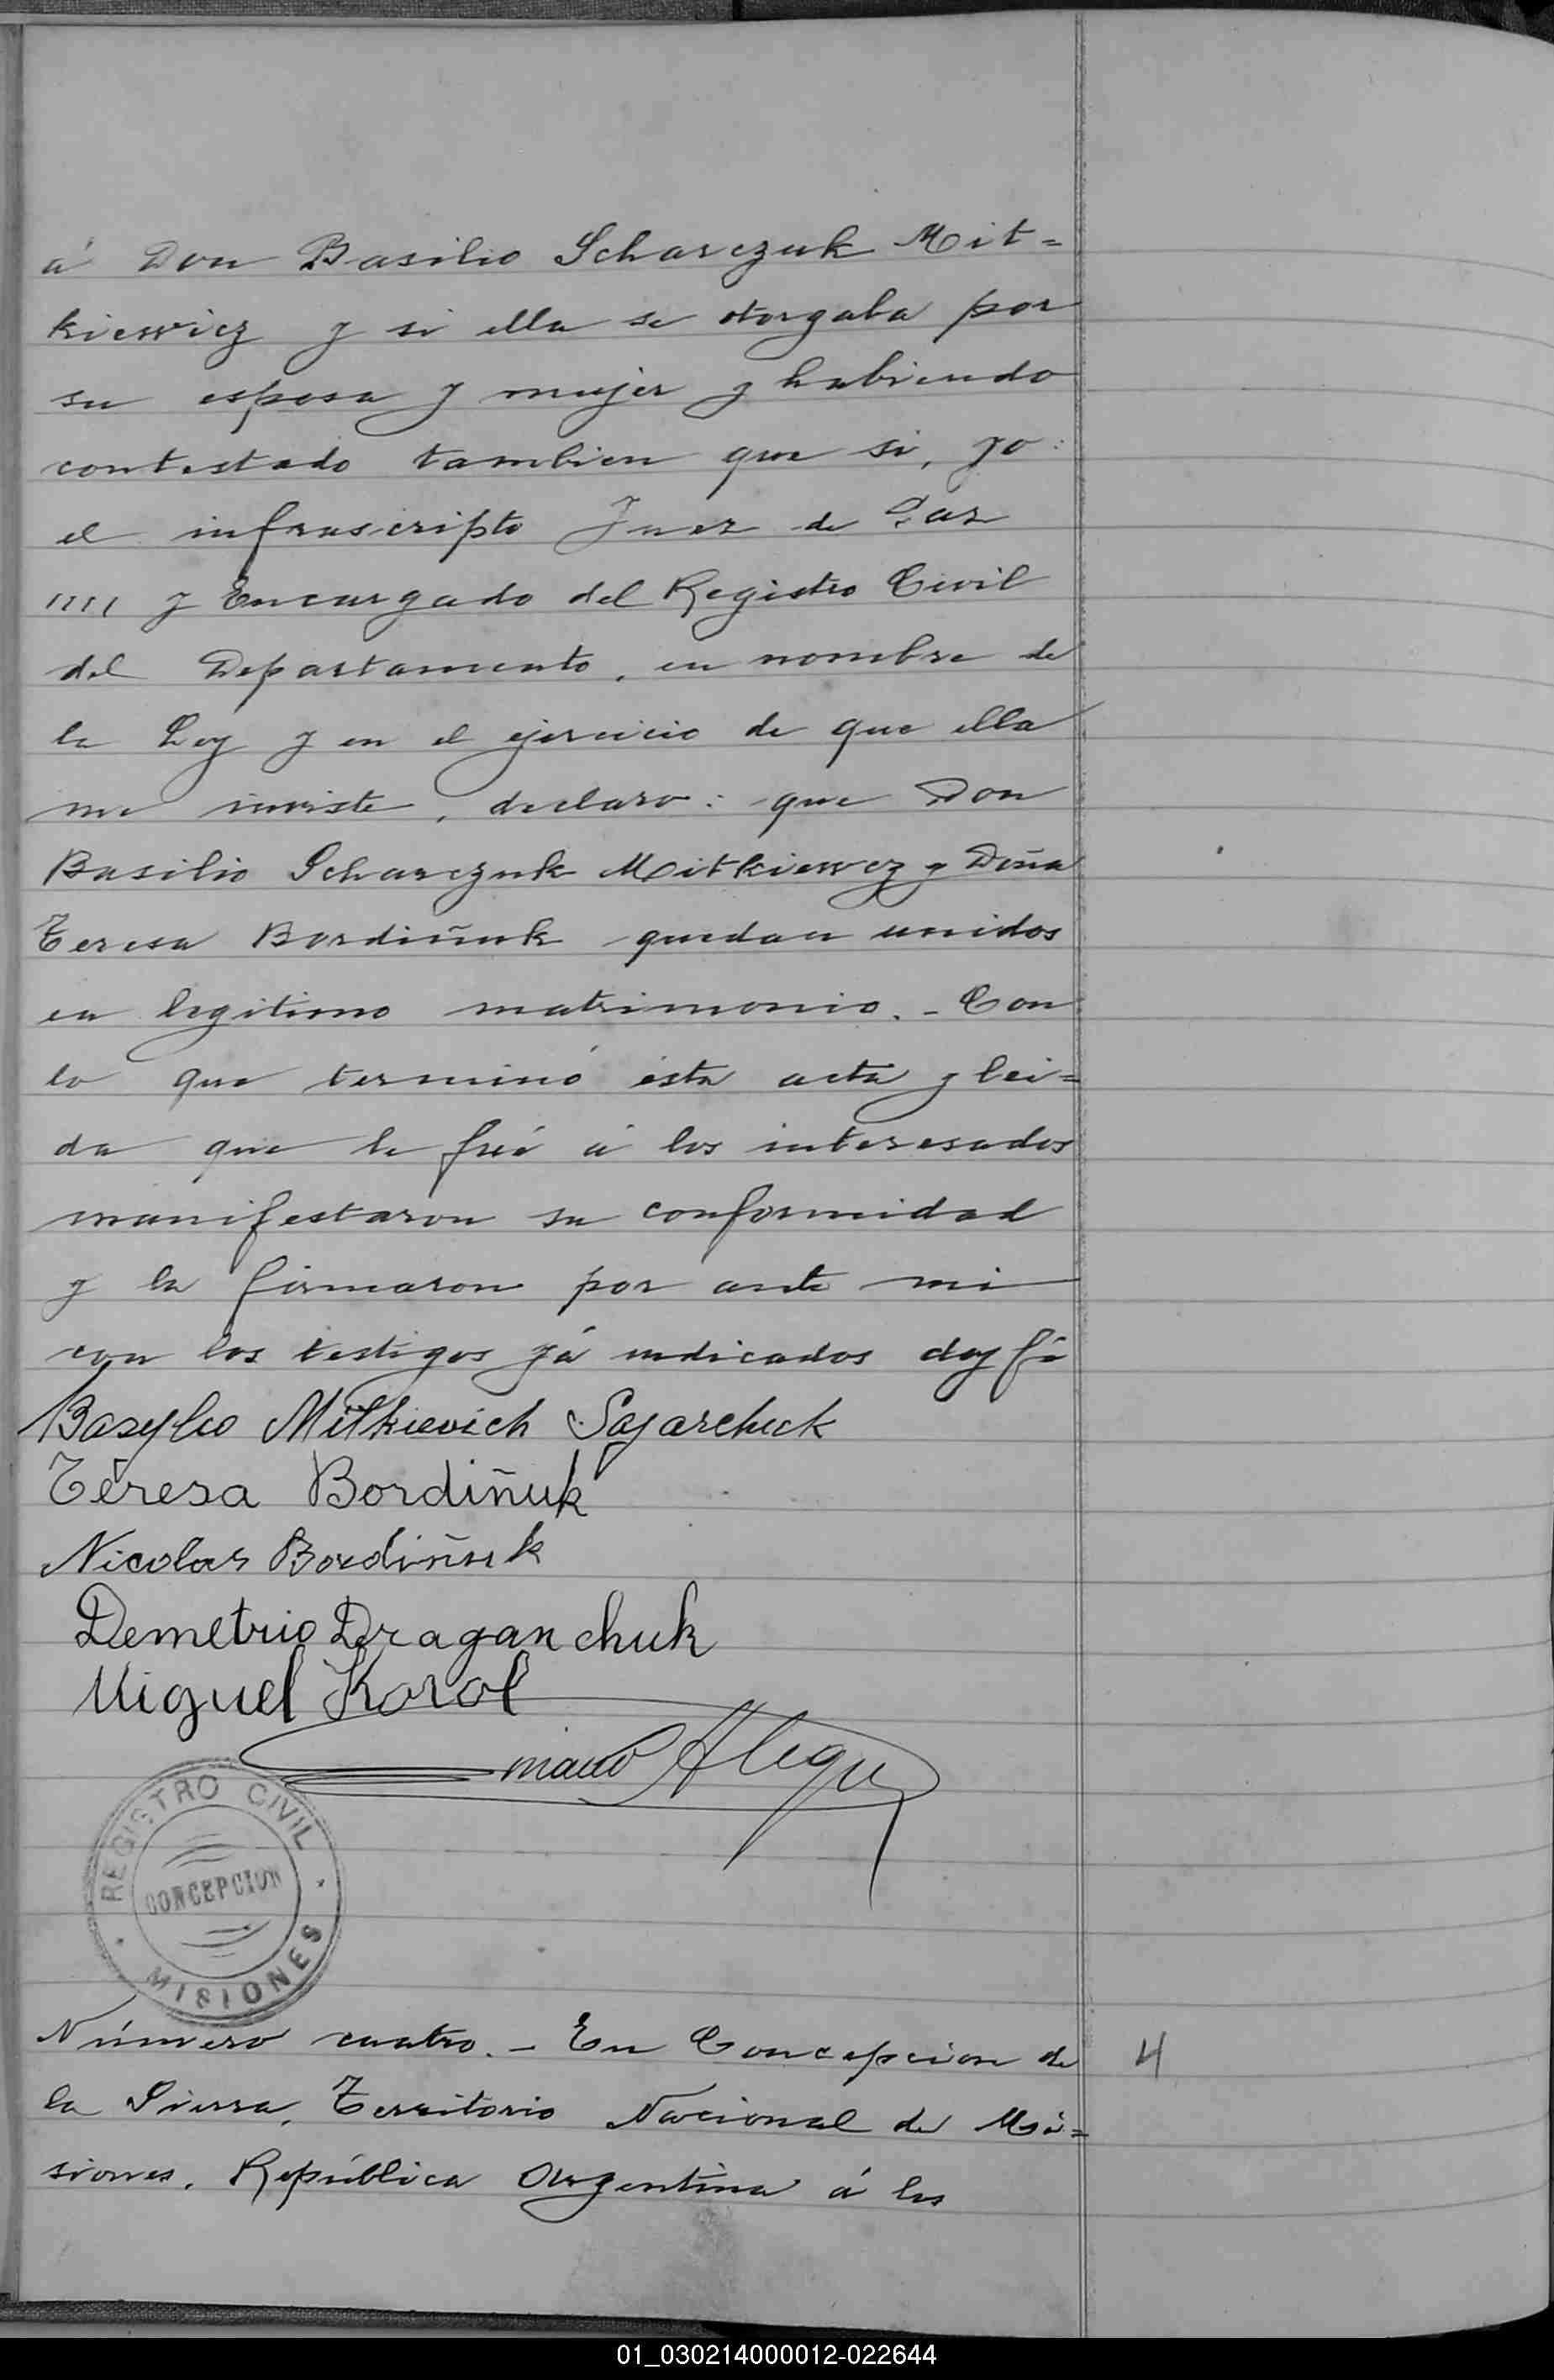 á Don Basilio Scharczuk Mit=
kiewicz y si ella se otorgaba por
su esposa y mujer y habiendo
contestado tambien que si, yo:
el infrascripto Juez de Paz
y Encargado del Registro Civil
del Departamento, en nombre de
la Ley y en el ejercicio de que ella
me inviste, declaro: que Don
Basilio Scharczuk Mitkiewcz y Doña
Teresa Bordiñuk quedan unidos
en legitimo matrimonio. - Con
lo que terminó ésta acta y lei=
da que le fué á los interesados
manifestaron su conformidad
y la firmaron por ante mi
con los testigos yá indicados doy fé
Basylio Mitkievich Sajarchuk
Téresa Bordiñuk
Nicolas Bordiñuk
Demetrio Draganchuk
Miguel Korol
REGISTRO CIVIL
CONCEPCION
MISIONES
Número cuatro. - En Concepcion de 4
la Sierra, Territorio Nacional de Mi=
siones, República Argentina á las
01_030214000012-022644